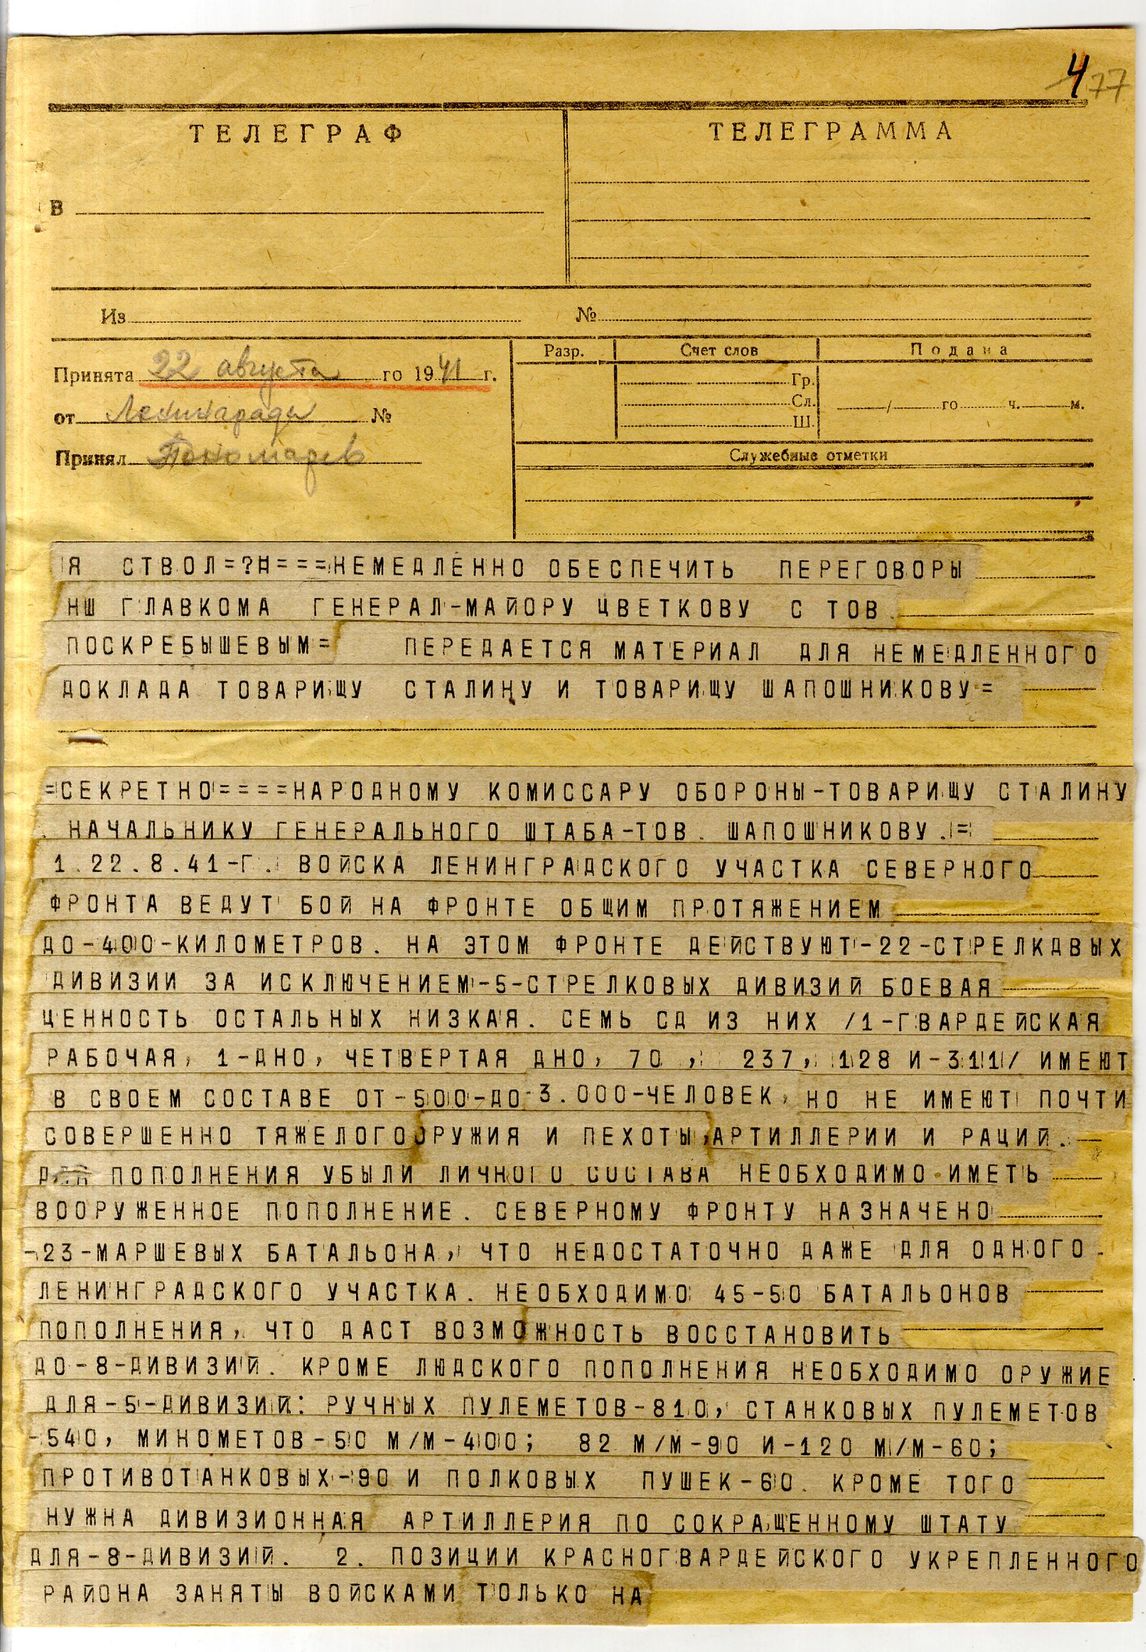 4 77
ТЕЛЕГРАФ
ТЕЛЕГРАММА
В
Из
№
Принята 22 августа го 1941 г.
от Ленинграда №
Принял Пономарев
Разр.
Счет слов
Подана
Гр.
Сл.
Ш.
/ го ч. м.
Служебные отметки
Я СТВОЛ=?Н====НЕМЕДЛЕННО ОБЕСПЕЧИТЬ ПЕРЕГОВОРЫ
НШ ГЛАВКОМА ГЕНЕРАЛ-МАЙОРУ ЦВЕТКОВУ С ТОВ.
ПОСКРЕБЫШЕВЫМ= ПЕРЕДАЕТСЯ МАТЕРИАЛ ДЛЯ НЕМЕДЛЕННОГО
ДОКЛАДА ТОВАРИЩУ СТАЛИНУ И ТОВАРИЩУ ШАПОШНИКОВУ=
=СЕКРЕТНО====НАРОДНОМУ КОМИССАРУ ОБОРОНЫ-ТОВАРИЩУ СТАЛИНУ
. НАЧАЛЬНИКУ ГЕНЕРАЛЬНОГО ШТАБА-ТОВ. ШАПОШНИКОВУ.=
1.22.8.41-Г. ВОЙСКА ЛЕНИНГРАДСКОГО УЧАСТКА СЕВЕРНОГО
ФРОНТА ВЕДУТ БОЙ НА ФРОНТЕ ОБЩИМ ПРОТЯЖЕНИЕМ
ДО-400-КИЛОМЕТРОВ. НА ЭТОМ ФРОНТЕ ДЕЙСТВУЮТ-22-СТРЕЛКДВЫХ
ДИВИЗИИ ЗА ИСКЛЮЧЕНИЕМ-5-СТРЕЛКОВЫХ ДИВИЗИЙ БОЕВАЯ
ЦЕННОСТЬ ОСТАЛЬНЫХ НИЗКАЯ. СЕМЬ СД ИЗ НИХ /1-ГВАРДЕЙСКАЯ
РАБОЧАЯ, 1-ДНО, ЧЕТВЕРТАЯ ДНО, 70 , 237, 128 И-311/ ИМЕЮТ
В СВОЕМ СОСТАВЕ ОТ-500-ДО-3.000-ЧЕЛОВЕК, НО НЕ ИМЕЮТ ПОЧТИ
СОВЕРШЕННО ТЯЖЕЛОГО ОРУЖИЯ И ПЕХОТЫ,АРТИЛЛЕРИИ И РАЦИЙ.
ДЛЯ ПОПОЛНЕНИЯ УБЫЛИ ЛИЧНОГО СОСТАВА НЕОБХОДИМО ИМЕТЬ
ВООРУЖЕННОЕ ПОПОЛНЕНИЕ. СЕВЕРНОМУ ФРОНТУ НАЗНАЧЕНО
-23-МАРШЕВЫХ БАТАЛЬОНА, ЧТО НЕДОСТАТОЧНО ДАЖЕ ДЛЯ ОДНОГО
ЛЕНИНГРАДСКОГО УЧАСТКА. НЕОБХОДИМО 45-50 БАТАЛЬОНОВ
ПОПОЛНЕНИЯ, ЧТО ДАСТ ВОЗМОЖНОСТЬ ВОССТАНОВИТЬ
ДО-8-ДИВИЗИЙ. КРОМЕ ЛЮДСКОГО ПОПОЛНЕНИЯ НЕОБХОДИМО ОРУЖИЕ
ДЛЯ-5-ДИВИЗИЙ: РУЧНЫХ ПУЛЕМЕТОВ-810, СТАНКОВЫХ ПУЛЕМЕТОВ
-540, МИНОМЕТОВ-50 М/М-400; 82 М/М-90 И-120 М/М-60;
ПРОТИВОТАНКОВЫХ-90 И ПОЛКОВЫХ ПУШЕК-60. КРОМЕ ТОГО
НУЖНА ДИВИЗИОННАЯ АРТИЛЛЕРИЯ ПО СОКРАЩЕННОМУ ШТАТУ
ДЛЯ-8-ДИВИЗИЙ. 2. ПОЗИЦИИ КРАСНОГВАРДЕЙСКОГО УКРЕПЛЕННОГО
РАЙОНА ЗАНЯТЫ ВОЙСКАМИ ТОЛЬКО НА